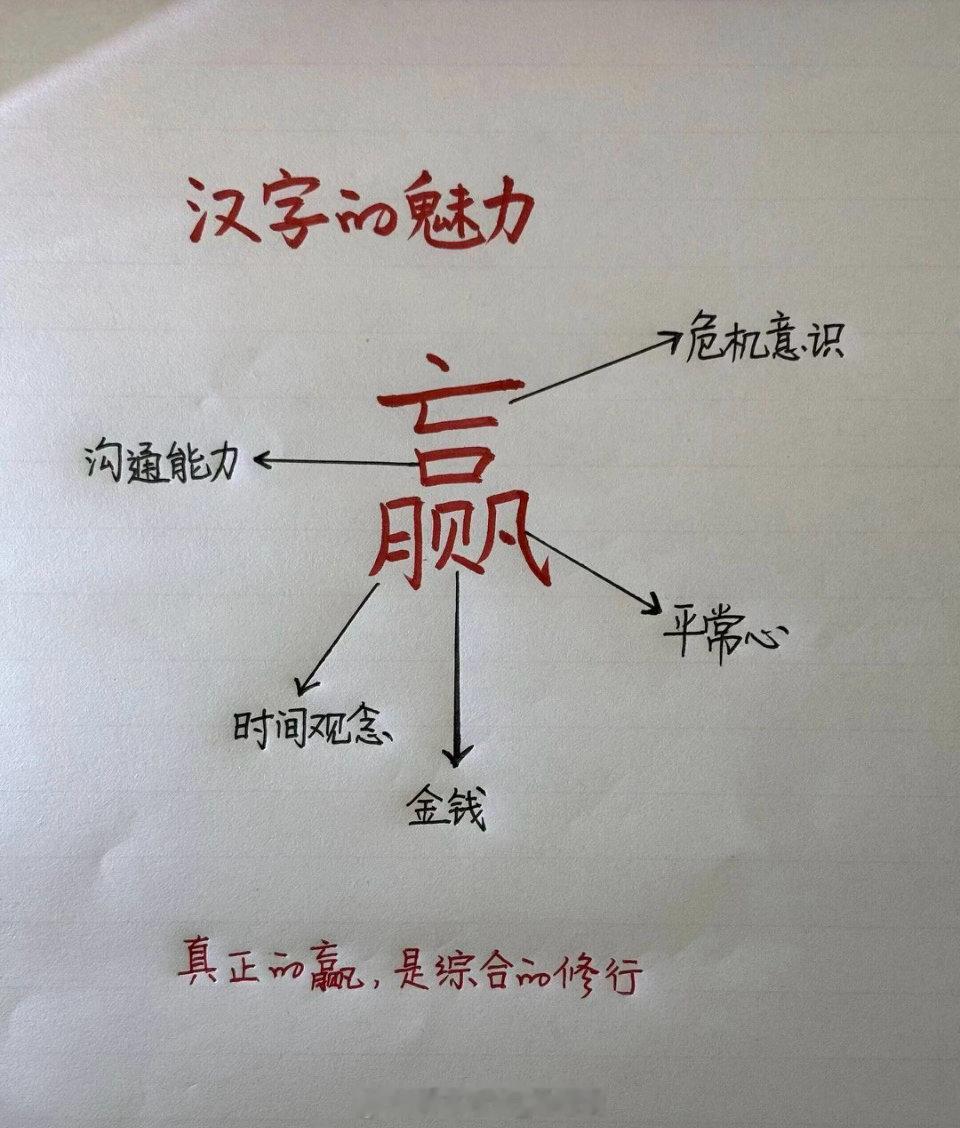 汉字的魅力
危机意识
赢
沟通能力
平常心
时间观念
金钱
真正的赢,是综合的修行